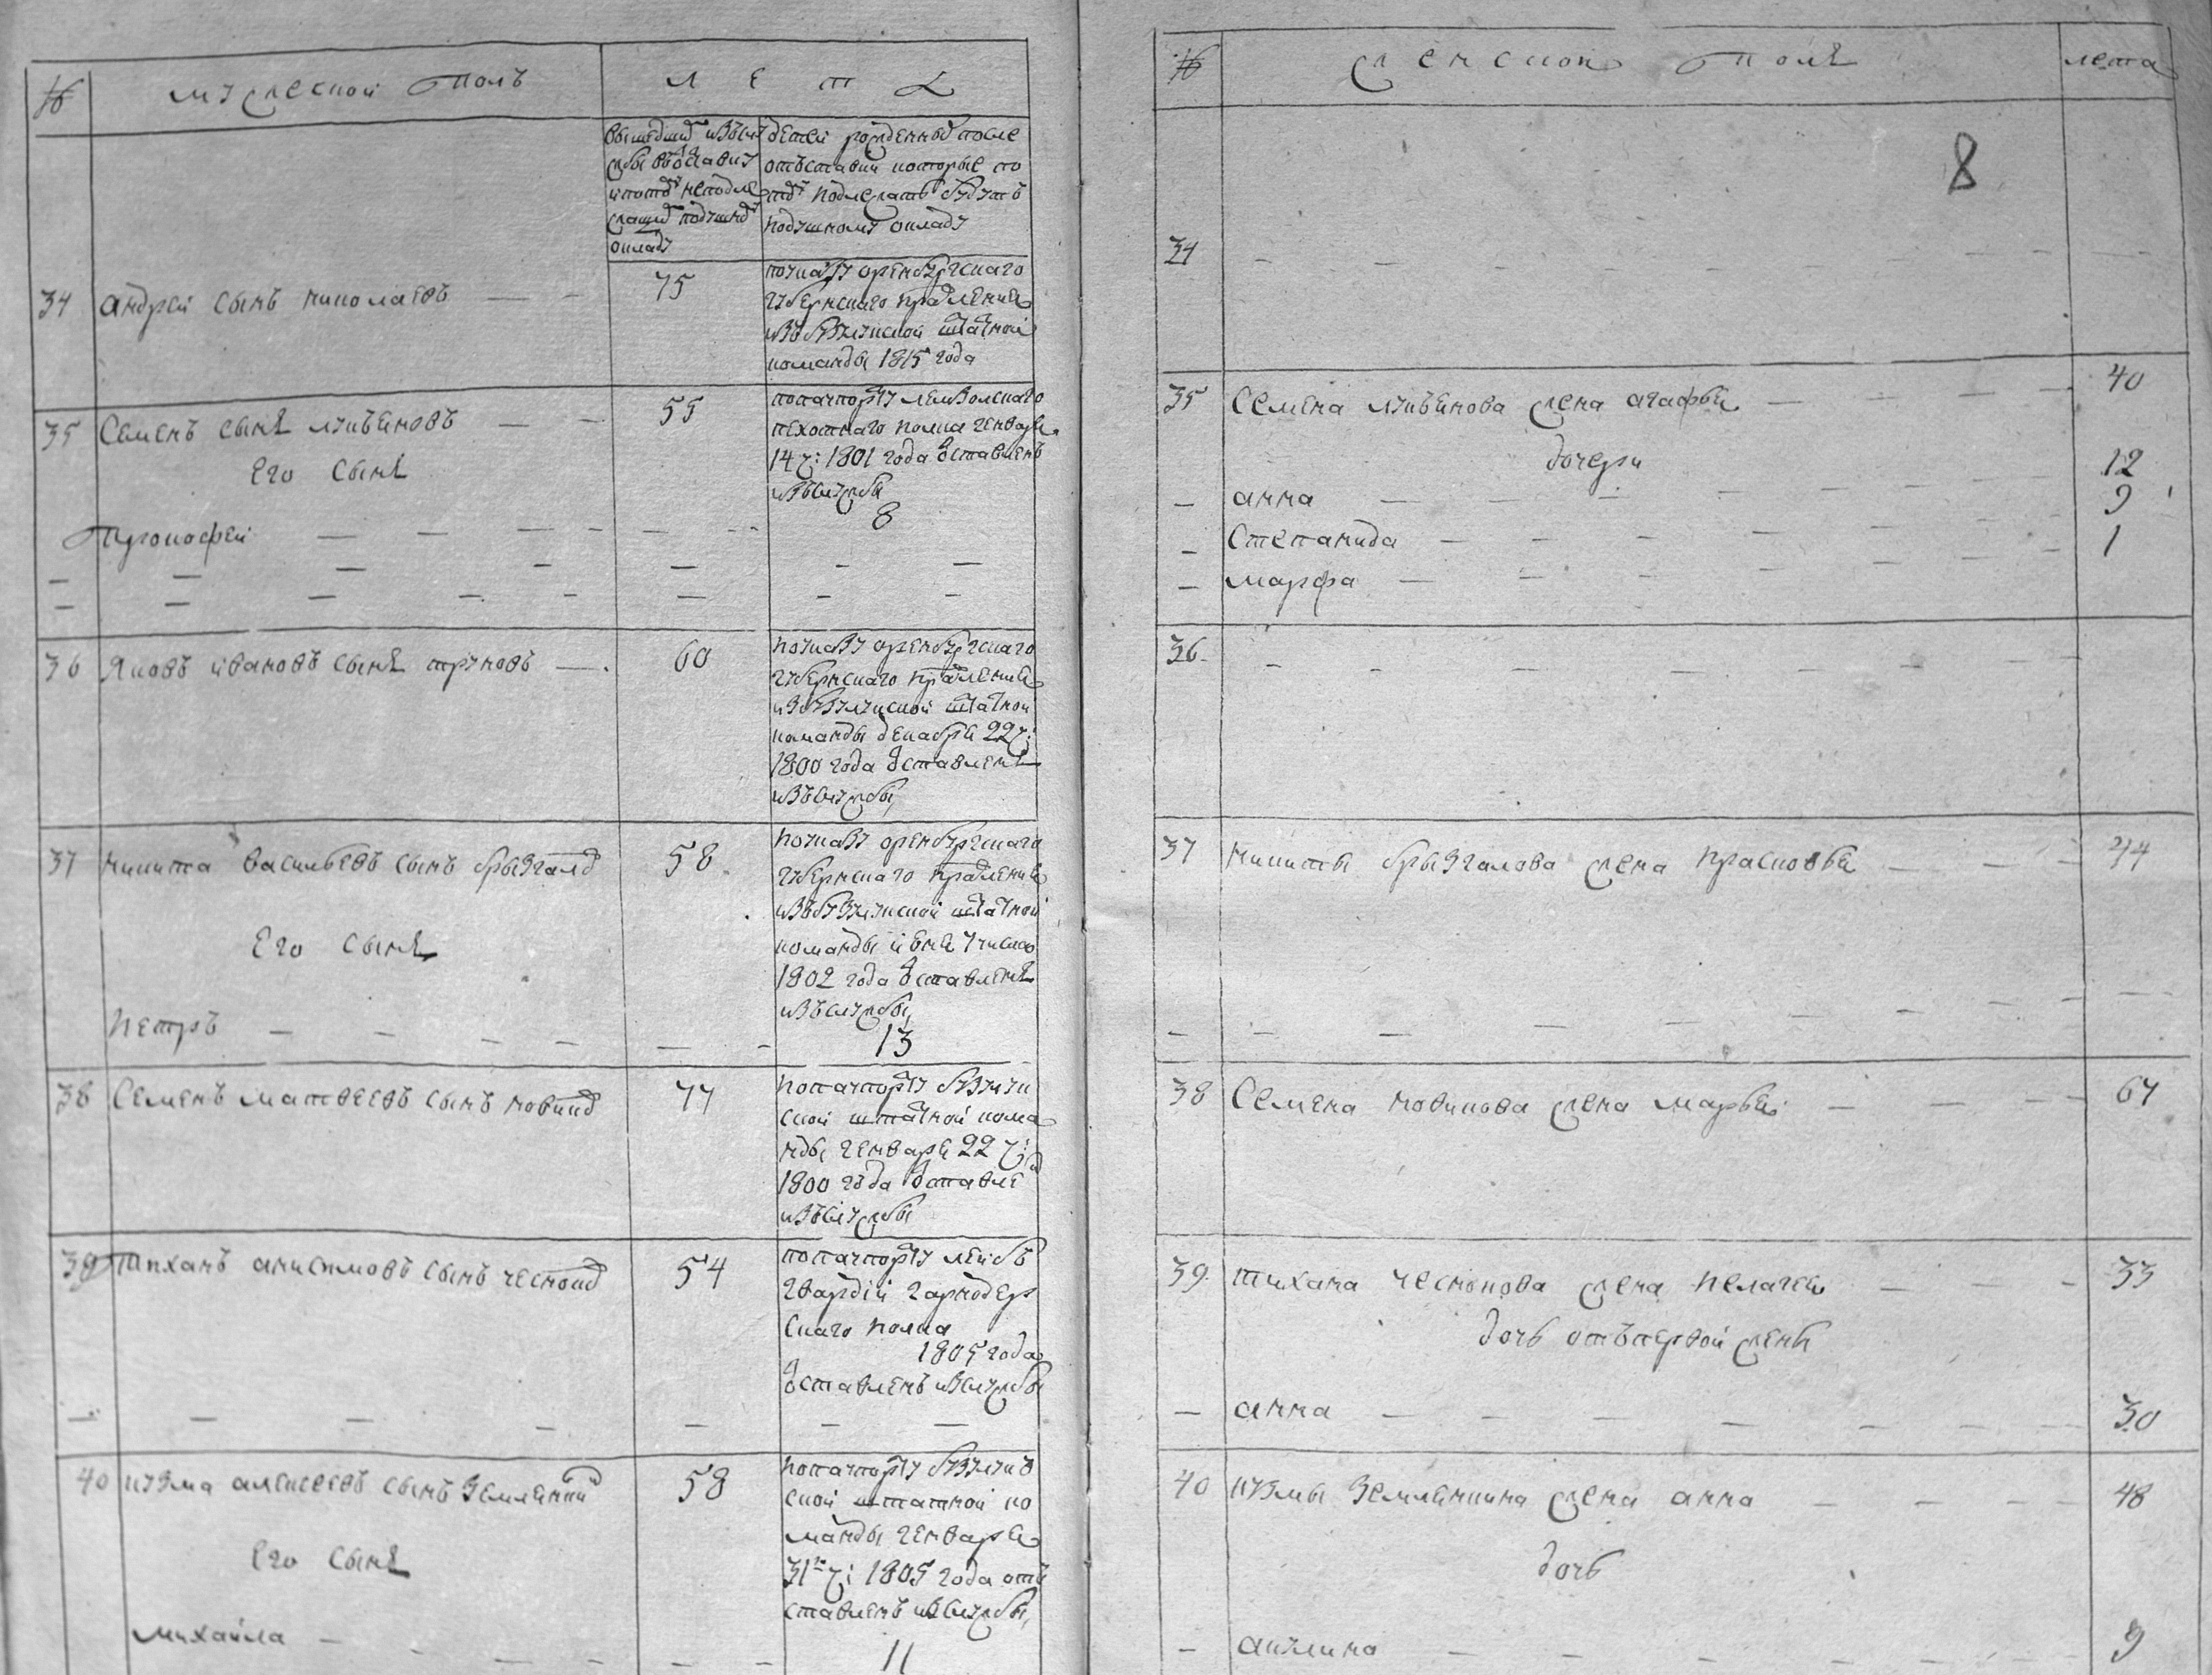 №
мужеской полъ
л е т а
вышедших изъслу
жбы въотставку
ипотому неподле
жащих подушному
окладу
детей рожденных после
отъставки которые по
тому подлежать будутъ
подушному окладу
34 андрей сынъ николаевъ — — 75
поуказу оренбургскаго
губернскаго правления
избузулукской штатной
команды 1815 года
35 Семенъ сынъ лукьяновъ — — 55
попачпорту
пехотнаго полка генваря
14 ч: 1801 года отставленъ
изъслужбы
Его Сынъ
Прокофей — — — — 8
36 Яковъ ивановъ сынъ труновъ — 60
поуказу оренбургскаго
губернскаго правления
избузулукской штатной
команды декабря 22 ч:
1800 года отставленъ
изъслужбы
37 никита васильевъ сынъ брызгаловъ 58
поуказу оренбургскаго
губернскаго правления
изъбузулукской штатной
команды числа
1802 года отставленъ
изъслужбы
Его Сынъ
Петръ — — — — 13
38 Семенъ матвеевъ сынъ новиковъ 77
попачпорту бузулук
ской штатной кома
нды генваря 22 ч:
1800 года отставле
изъслужбы
39 Тиханъ анисимовъ сынъ чесноковъ 54
попачпорту лейбъ
гвардіи гарнодер
скаго полка
1805 года
отставленъ изслужбы
40 кузма алексеевъ сынъ Землянкин 58
попачпорту бузулукъ
ской штатной ко
манды генваря
31 ч: 1805 года отъ
ставленъ изслужбы
Его Сынъ
михайла — — — — 11
№
женской полъ
лета
8
34 — — — —
35 Семена лукьянова жена агафья — — 40
дочери
— анна — — 12
— Степанида — — 9
— марфа — — 1
36 — — — —
37 никиты брызгалова жена прасковья — — 44
38 Семена новикова жена марья — — 67
39 тихана чеснокова жена пелагея — — 33
дочь отъпервой жены
— анна — — 30
40 кузмы Землянкина жена анна — — 48
дочь
— акулина — — 9